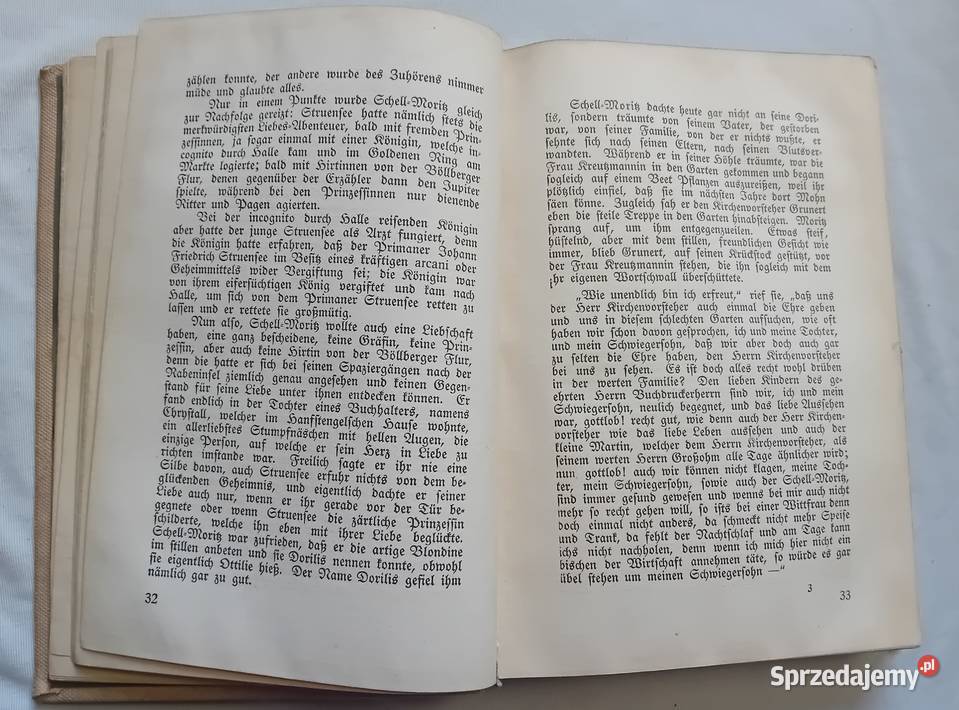 zählen konnte, der andere wurde des Zuhörens nimmer
müde und glaubte alles.
Nur in einem Punkte wurde Schell-Moritz gleich
zur Nachfolge gereizt: Struensee hatte nämlich stets die
merkwürdigsten Liebes-Abenteuer, bald mit fremden Prin-
zessinnen, ja sogar einmal mit einer Königin, welche in-
cognito durch Halle kam und im Goldenen Ring am
Markte logierte; bald mit Hirtinnen von der Böllberger
Flur, denen gegenüber der Erzähler dann den Jupiter
spielte, während bei den Prinzessinnen nur dienende
Ritter und Pagen agierten.
Bei der incognito durch Halle reisenden Königin
aber hatte der junge Struensee als Arzt fungiert, denn
die Königin hatte erfahren, daß der Primaner Johann
Friedrich Struensee im Besitz eines kräftigen arcani oder
Geheimmittels wider Vergiftung sei; die Königin war
von ihrem eifersüchtigen König vergiftet und kam nach
Halle, um sich von dem Primaner Struensee retten zu
lassen und er rettete sie großmütig.
Nun also, Schell-Moritz wollte auch eine Liebschaft
haben, eine ganz bescheidene, keine Gräfin, keine Prin-
zessin, aber auch keine Hirtin von der Böllberger Flur,
denn die hatte er sich bei seinen Spaziergängen nach der
Rabeninsel ziemlich genau angesehen und keinen Gegen-
stand für seine Liebe unter ihnen entdecken können. Er
fand endlich in der Tochter eines Buchhalters, namens
Chrystall, welcher im Hanfstengelschen Hause wohnte,
ein allerliebstes Stumpfnäschen mit hellen Augen, die
einzige Person, auf welche er sein Herz in Liebe zu
richten imstande war. Freilich sagte er ihr nie eine
Silbe davon, auch Struensee erfuhr nichts von dem be-
glückenden Geheimnis, und eigentlich dachte er seiner
Liebe auch nur, wenn er ihr gerade vor der Tür be-
gegnete oder wenn Struensee die zärtliche Prinzessin
schilderte, welche ihn eben mit ihrer Liebe beglückte.
Schell-Moritz war zufrieden, daß er die artige Blondine
im stillen anbeten und sie Dorilis nennen konnte, obwohl
sie eigentlich Ottilie hieß. Der Name Dorilis gefiel ihm
nämlich gar zu gut.
32
Schell-Moritz dachte heute gar nicht an seine Dori-
lis, sondern träumte von seinem Vater, der gestorben
war, von seiner Familie, von der er nichts wußte, er
sehnte sich nach seinen Eltern, nach seinen Blutsver-
wandten. Während er in seiner Höhle träumte, war die
Frau Kreutzmannin in den Garten gekommen und begann
sogleich auf einem Beet Pflanzen auszureißen, weil ihr
plötzlich einfiel, daß sie im nächsten Jahre dort Mohn
säen könne. Zugleich sah er den Kirchenvorsteher Grunert
eben die steile Treppe in den Garten hinabsteigen. Moritz
sprang auf, um ihm entgegenzueilen. Etwas steif,
hüstelnd, aber mit dem stillen, freundlichen Gesicht wie
immer, blieb Grunert, auf seinen Krückstock gestützt, vor
der Frau Kreutzmannin stehen, die ihn sogleich mit dem
ihr eigenen Wortschwall überschüttete.
„Wie unendlich bin ich erfreut,“ rief sie, „daß uns
der Herr Kirchenvorsteher auch einmal die Ehre geben
und uns in diesem schlechten Garten aufsuchen, wie oft
haben wir schon davon gesprochen, ich und meine Tochter,
und mein Schwiegersohn, daß wir aber doch auch gar
zu selten die Ehre haben, den Herrn Kirchenvorsteher
bei uns zu sehen. Es ist doch alles recht wohl drüben
in der werten Familie? Den lieben Kindern des ge-
ehrten Herrn Buchdruckerherrn sind wir, ich und mein
Schwiegersohn, neulich begegnet, und das liebe Aussehen
war, gottlob! recht gut, wie denn auch der Herr Kirchen-
vorsteher wie das liebe Leben aussehen und auch der
kleine Martin, welcher dem Herrn Kirchenvorsteher, als
seinem werten Herrn Großohm alle Tage ähnlicher wird;
nun gottlob! auch wir können nicht klagen, meine Toch-
ter, mein Schwiegersohn, sowie auch der Schell-Moritz,
sind immer gesund gewesen und wenns bei mir auch nicht
mehr so recht gehen will, so ists bei einer Wittfrau denn
doch einmal nicht anders, da schmeckt nicht mehr Speise
und Trank, da fehlt der Nachtschlaf und am Tage kann
ichs nicht nachholen, denn wenn ich mich hier nicht ein
bischen der Wirtschaft annehmen täte, so würde es gar
übel stehen um meinen Schwiegersohn —“
3
33
Sprzedajemy.pl